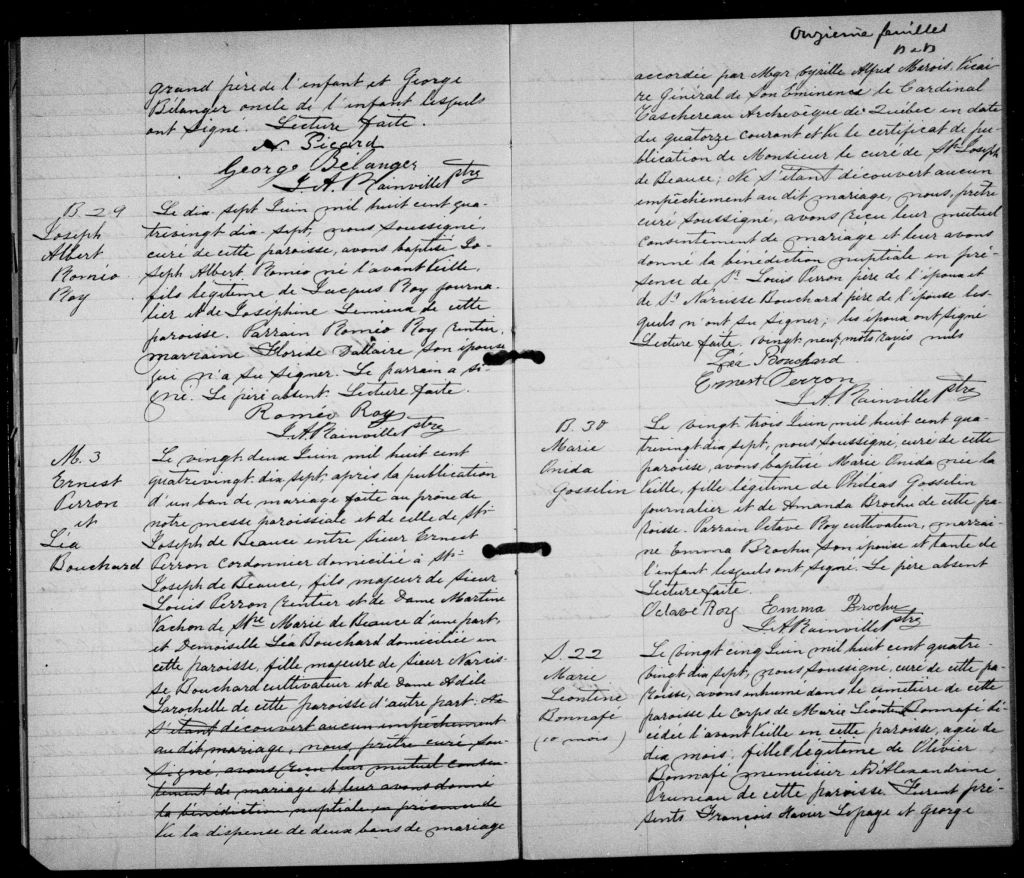 grand père de l'enfant et George
Bélanger oncle de l'enfant lesquels
ont signé. Lecture faite.
N. Picard
George Bélanger
J.A. Rainville ptre
B. 29
Joseph
Albert
Roméo
Roy
Le dix sept Juin mil huit cent qua-
trevingt dix sept, nous soussigné,
curé de cette paroisse, avons baptisé Jo-
seph Albert Roméo né l'avant veille,
fils légitime de Jacques Roy journa-
lier et de Joséphine Lemieux de cette
paroisse. Parrain Roméo Roy rentier,
marraine Floride Dallaire son épouse
qui n'a su signer. Le parrain a si-
gné. Le père absent. Lecture faite.
Roméo Roy
J.A. Rainville ptre
M. 3
Ernest
Perron
et
Léa
Bouchard
Le vingt deux Juin mil huit cent
quatrevingt dix sept, après la publication
d'un ban de mariage faite au prône de
notre messe paroissiale et de celle de St
Joseph de Beauce entre sieur Ernest
Perron cordonnier domicilié à St
Joseph de Beauce, fils majeur de sieur
Louis Perron rentier et de Dame Martine
Vachon de Ste Marie de Beauce d'une part,
et Demoiselle Léa Bouchard domiciliée en
cette paroisse, fille majeure de sieur Narcis-
se Bouchard cultivateur et de Dame Adèle
Larochelle de cette paroisse d'autre part. Ne
s'étant découvert aucun empêchement
au dit mariage, nous, prêtre curé, sous-
signé, avons reçu leur mutuel consen-
tement de mariage et leur avons donné
la bénédiction nuptiale en présence de
Vu la dispense de deux bans de mariage
Onzième feuillet
accordée par Mgr Cyrille Alfred Marois, Vicai-
re Général de Son Eminence le Cardinal
Taschereau Archevêque de Québec en date
du quatorze courant et vu le certificat de pu-
blication de Monsieur le curé de St Joseph
de Beauce; Ne s'étant découvert aucun
empêchement au dit mariage, nous, prêtre
curé soussigné, avons reçu leur mutuel
consentement de mariage et leur avons
donné la bénédiction nuptiale en pré-
sence de Sr Louis Perron père de l'époux et
de Sr Narcisse Bouchard père de l'épouse les-
quels n'ont su signer; les époux ont signé
Lecture faite. Vingt neuf mots rayés nuls
Léa Bouchard
Ernest Perron
J.A. Rainville ptre
B. 30
Marie
Onida
Gosselin
Le vingt trois Juin mil huit cent qua-
trevingt dix sept, nous soussigné, curé de cette
paroisse, avons baptisé Marie Onida née la
veille, fille légitime de Philéas Gosselin
journalier et de Amanda Brochu de cette pa-
roisse. Parrain Octave Roy cultivateur, marrai-
ne Emma Brochu son épouse et tante de
l'enfant lesquels ont signé. Le père absent
Lecture faite.
Octave Roy Emma Brochu
J.A. Rainville ptre
S. 22
Marie
Léontine
Bonnafé
(10 mois)
Le vingt cinq Juin mil huit cent quatre-
vingt dix sept, nous soussigné, curé de cette pa-
roisse, avons inhumé dans le cimetière de cette
paroisse le corps de Marie Léontine Bonnafé dé-
cédée l'avant veille en cette paroisse, agée de
dix mois, fille légitime de Olivier
Bonnafé menuisier et d'Alexandrine
Pruneau de cette paroisse. Furent pré-
sents François Xavier Lepage et George